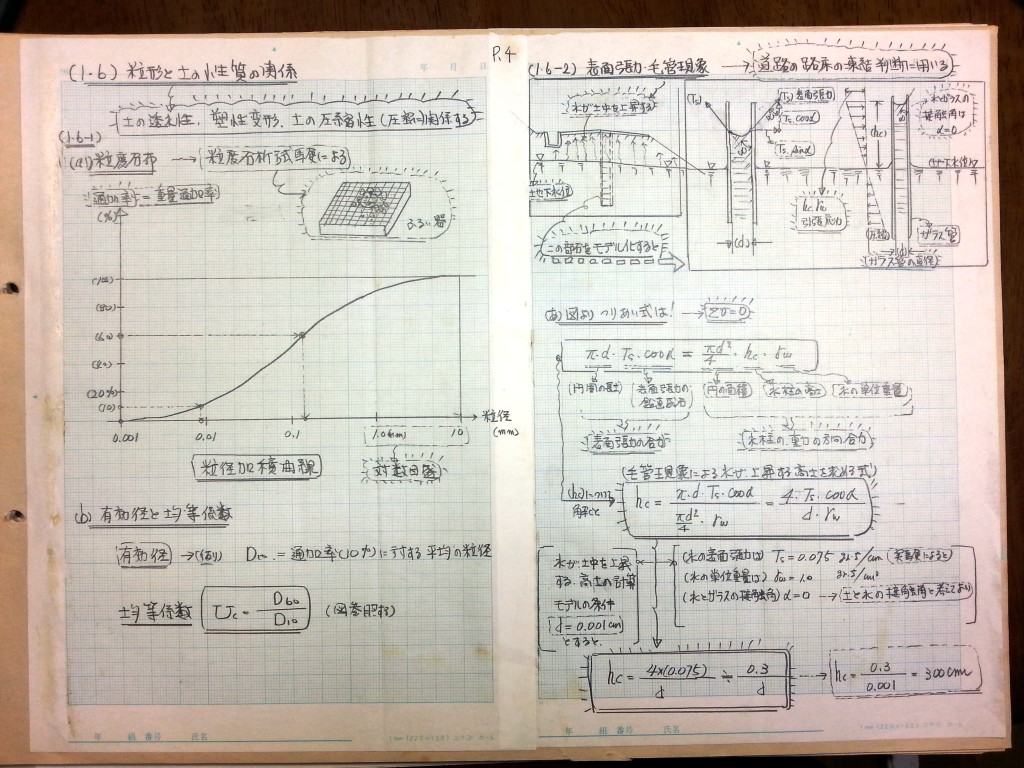 P.4
(1・6) 粒形と土の性質の関係
土の透水性, 塑性変形, 土の圧縮性(圧密)に関係する
(1・6-1)
(a) 粒度分布 → 粒度分析試験による
通加率 = 重量通加率
(%)
ふるい器
(100)
(80)
(60)
(40)
(20%)
(10)
0.001
0.01
0.1
1.0(mm)
10
粒径
(mm)
粒径加積曲線
対数目盛
(b) 有効径と均等係数
有効径 →
D₁₀ = 通加率(10%)に対する平均の粒径
均等係数
Uc = D60/D10
(図参照する)
年 組 番号 氏名
(1・6-2) 表面張力・毛管現象 → 道路の路床の凍結判断に用いる
水が土中を上昇する
地下水位
この部分をモデル化すると
(Ts)
(Ts) 表面張力
Ts. cosα
Ts. sinα
α
hc. γw
引張応力
(d)
(hc)
水とガラスの
接触角は
α=0
(地下水位)
ガラス管
(d)
(ガラス管の直径)
(あ) 図よりつりあい式は! → ΣV=0
π・d・Ts. cosα = πd²/4・hc・γw
(円周の長さ)
表面張力の
鉛直成分
円の面積
水柱の高さ
水の単位重量
表面張力の合力
水柱の重力の方向合力
(毛管現象による水が上昇する高さを求める式)
(hc)について
解くと
hc = π・d・Ts. cosα / πd²/4・γw = 4・Ts. cosα / d・γw
水が土中を上昇
する高さの計算
モデルの条件
d = 0.001cm
とすると.
(水の表面張力は) Ts = 0.075 gr.s/cm (実験によると)
(水の単位重量は) γw = 1.0 gr.s/cm³
(水とガラスの接触角) α=0 → (土と水の接触角と考えてよい)
hc = 4×(0.075)/d ≒ 0.3/d
hc = 0.3/0.001 = 300cm
年 組 番号 氏名